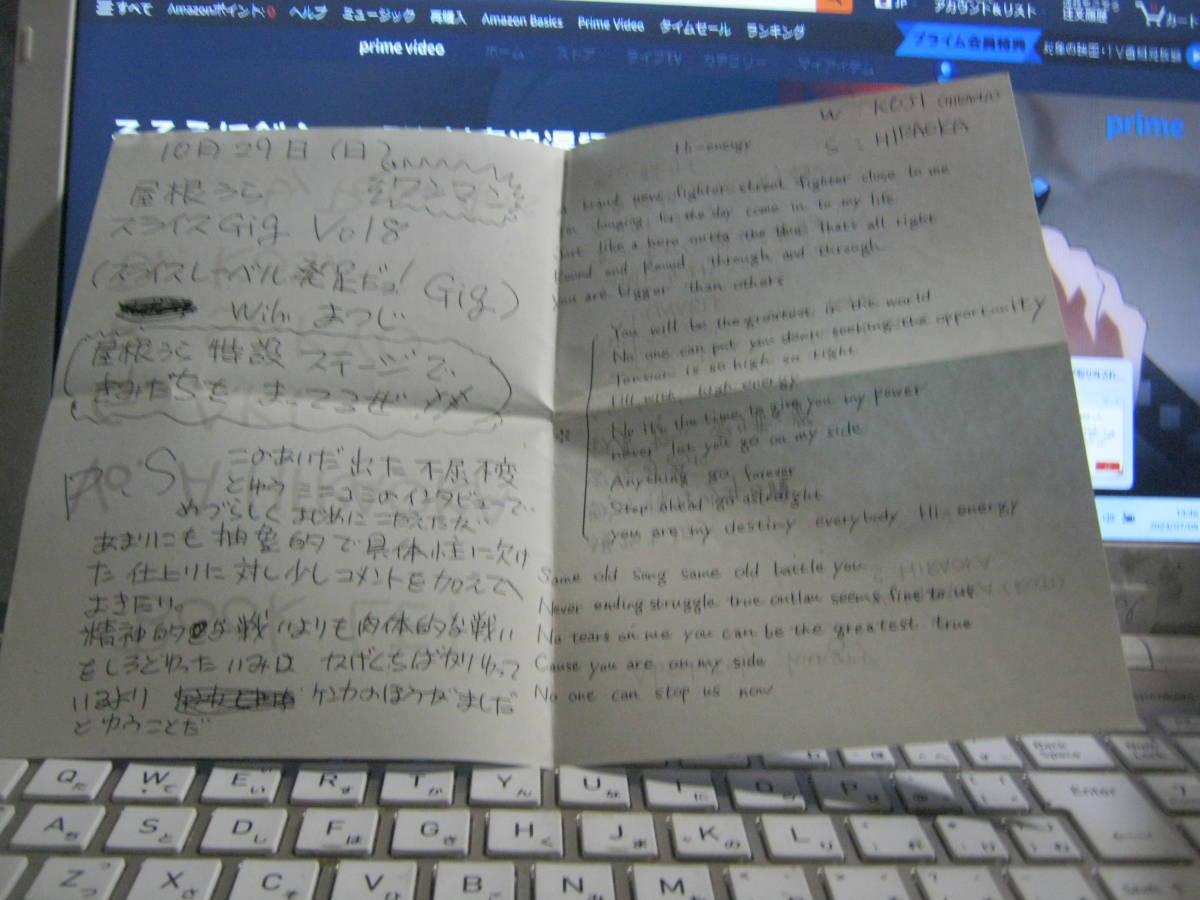 すべて Amazonポイント: 0 ヘルプ ミュージック 再購入 Amazon Basics Prime Video タイムセール ランキング
アカウント&リスト
注文履歴
カート
プライム会員特典
prime video ホーム ストア ライブTV カテゴリー マイアイテム
prime
10月29日(日)
屋根うら 初ワンマン
スライスGig Vol8
(スライスレーベル発足だょ! Gig)
With まつじ
屋根うら 特設 ステージで
きみたちを まってるぜ
P.S このあいだ出た 不屈不変
とゆうミニコミのインタビューで、
めづらしく まじめに こたえたが
あまりにも 抽象的で具体性に欠け
た 仕上りに対し少しコメントを加えて
おきたい。
精神的な戦いよりも肉体的な戦い
をしろとゆった いみは なげくちばかりゆって
いるより ケンカのほうがましだ
とゆうことだ
W : KOJI
S : HIRAOKA
Hi-energy
brand new fighter street fighter close to me
longing for the day come in to my life
Just like a hero outta the blue that's all right
Round and Round through and through
You are bigger than others
You will be the greatest in the world
No one can put you down seeking the opportunity
Tension is so high so tight
Fill with high energy
No it's the time to give you my power
never let you go on my side
Anything go forever
Step ahead go astraight
you are my destiny everybody Hi-energy
Same old song same old battle you
Never ending struggle true outlaw seems fine to us
No tears on me you can be the greatest true
Cause you are on my side
No one can stop us now
Q た W て E い R す T か Y ん U な I に O P せ
Back Space
Num Lock
Enter
A ち S と D し F は G き H く J ま K の L り
Z つ X さ C そ V ひ B こ N み M も
Shift